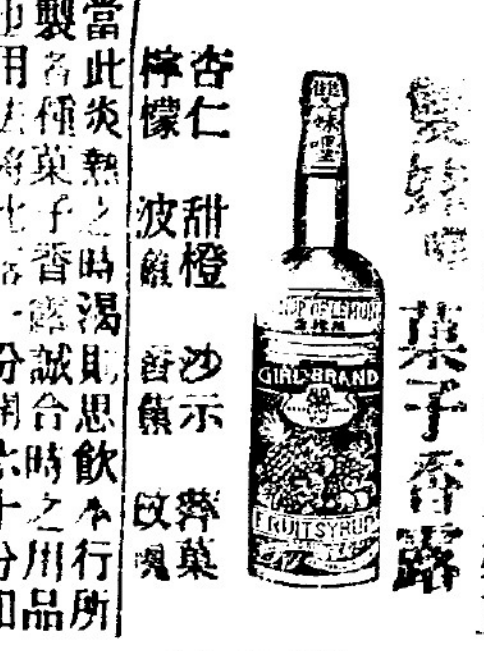 雙妹嚜菓子香露
雙妹嚜
OF LEMON
GIRL BRAND
FRUIT SYRUP
杏仁 甜橙 沙示 蘋菓
檸檬 波羅 香蕉 玫瑰
當此炎熱之時渴則思飲本行所
製各種菓子香露誠合時之用品